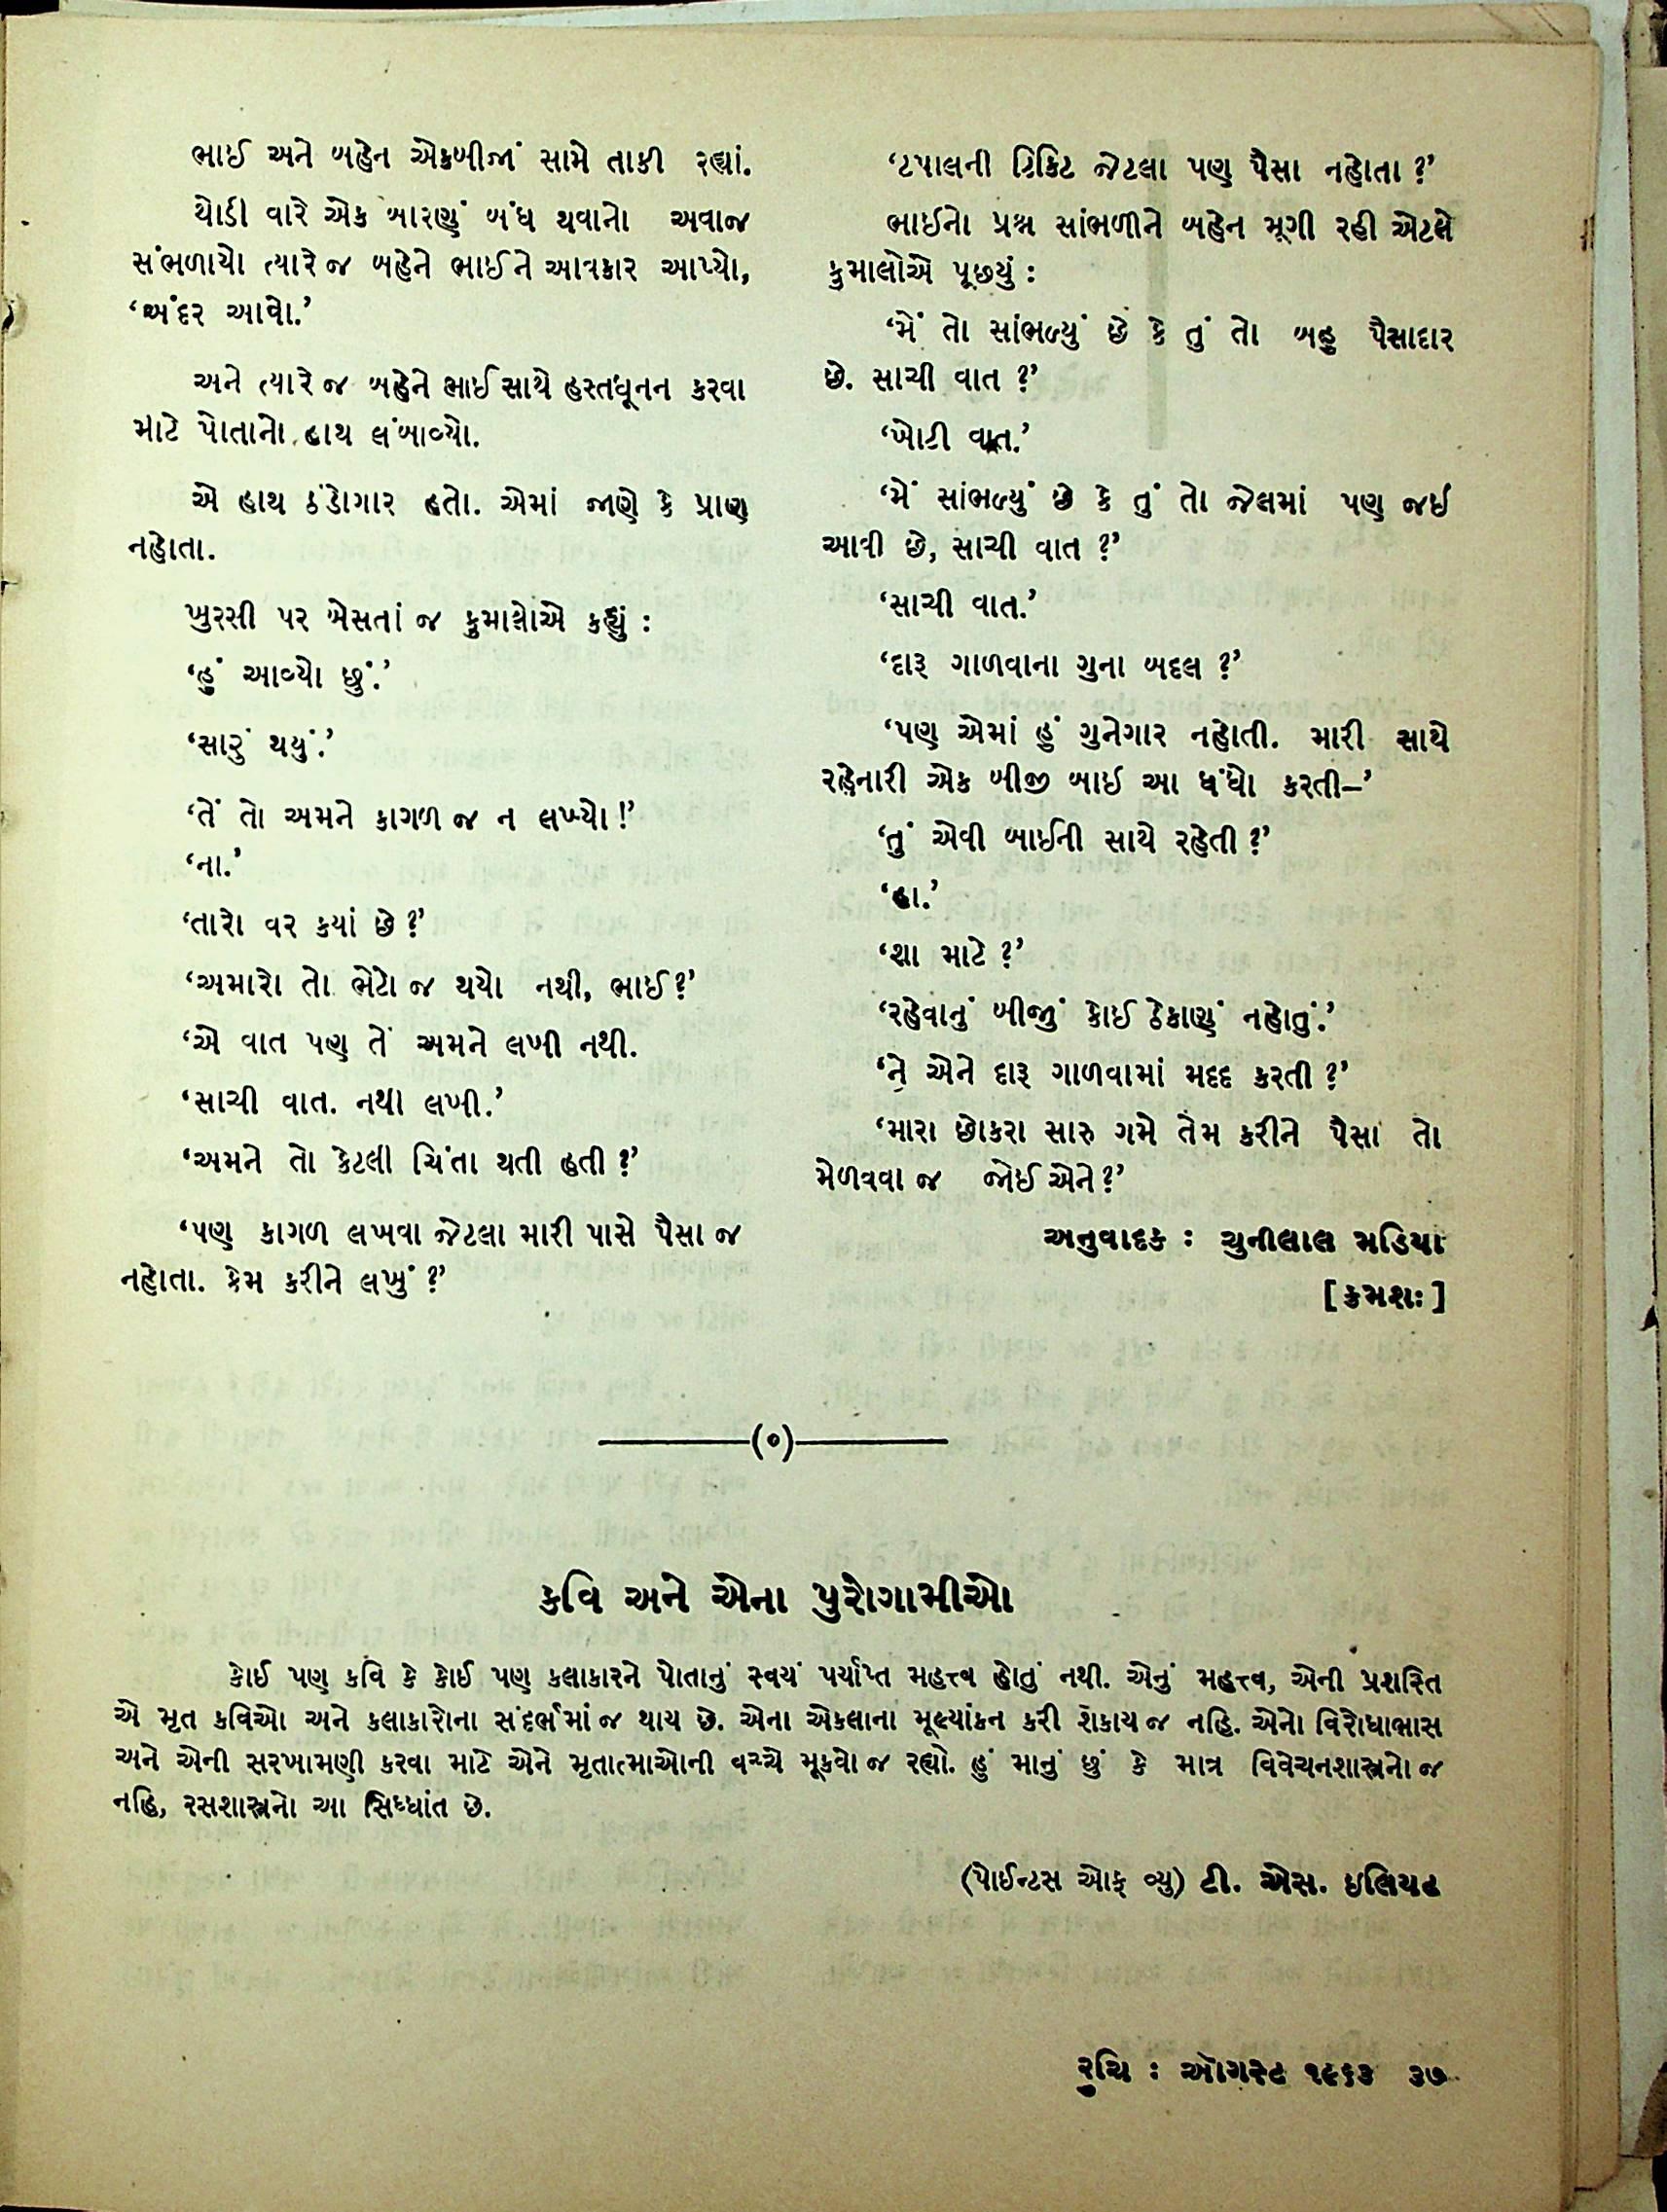 ભાઈ અને બહેન એકબીજાં સામે તાકી રહ્યાં.
થોડી વારે એક બારણું બંધ થવાનો અવાજ
સંભળાયો ત્યારે જ બહેને ભાઈને આવકાર આપ્યો,
‘અંદર આવો.’
અને ત્યારે જ બહેને ભાઈ સાથે હસ્તધૂનન કરવા
માટે પોતાનો હાથ લંબાવ્યો.
એ હાથ ઠંડોગાર હતો. એમાં જાણે કે પ્રાણ
નહોતા.
ખુરસી પર બેસતાં જ કુમાલોએ કહ્યું :
‘હું આવ્યો છું.’
‘સારું થયું.’
‘તેં તો અમને કાગળ જ ન લખ્યો !’
‘ના.’
‘તારો વર કયાં છે ?’
‘અમારો તો ભેટો જ થયો નથી, ભાઈ ?’
‘એ વાત પણ તેં અમને લખી નથી.
‘સાચી વાત. નથી લખી.’
‘અમને તો કેટલી ચિંતા થતી હતી ?’
‘પણ કાગળ લખવા જેટલા મારી પાસે પૈસા જ
નહોતા. કેમ કરીને લખું ?’
‘ટપાલની ટિકિટ જેટલા પણ પૈસા નહોતા ?’
ભાઈનો પ્રશ્ન સાંભળીને બહેન મૂગી રહી એટલે
કુમાલોએ પૂછયું :
‘મેં તો સાંભળ્યું છે કે તું તો બહુ પૈસાદાર
છે. સાચી વાત ?’
‘ખોટી વાત.’
‘મેં સાંભળ્યું છે કે તું તો જેલમાં પણ જઈ
આવી છે, સાચી વાત ?’
‘સાચી વાત.’
‘દારૂ ગાળવાના ગુના બદલ ?’
‘પણ એમાં હું ગુનેગાર નહોતી. મારી સાથે
રહેનારી એક બીજી બાઈ આ ધંધો કરતી—’
‘તું એવી બાઈની સાથે રહેતી ?’
‘હા.’
‘શા માટે ?’
‘રહેવાનું બીજું કોઈ ઠેકાણું નહોતું.’
‘ને એને દારૂ ગાળવામાં મદદ કરતી ?’
‘મારા છોકરા સારુ ગમે તેમ કરીને પૈસા તો
મેળવવા જ જોઈ એને ?’
અનુવાદક : ચુનીલાલ મડિયા
[ ક્રમશઃ ]
(૦)
કવિ અને એના પુરોગામીઓ
કોઈ પણ કવિ કે કોઈ પણ કલાકારને પોતાનું સ્વયં પર્યાપ્ત મહત્ત્વ હોતું નથી. એનું મહત્ત્વ, એની પ્રશસ્તિ
એ મૃત કવિઓ અને કલાકારોના સંદર્ભમાં જ થાય છે. એના એકલાના મૂલ્યાંકન કરી શકાય જ નહિ. એનો વિરોધાભાસ
અને એની સરખામણી કરવા માટે એને મૃતાત્માઓની વચ્ચે મૂકવો જ રહ્યો. હું માનું છું કે માત્ર વિવેચનશાસ્ત્રનો જ
નહિ, રસશાસ્ત્રનો આ સિધ્ધાંત છે.
(પોઈન્ટસ ઓફ વ્યુ) ટી. એસ. ઇલિયટ
રુચિ : ઑગસ્ટ ૧૯૬૩ ૩૭